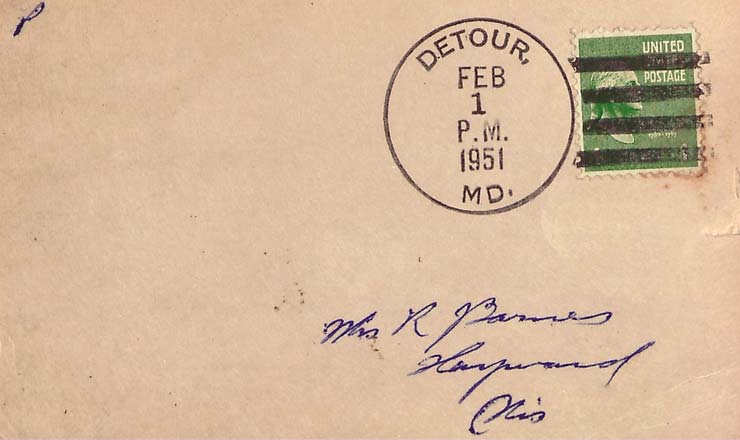 P
DETOUR,
FEB
1
P.M.
1951
MD.
UNITED
STATES
POSTAGE
Mrs R Barnes
Hayward
Wis